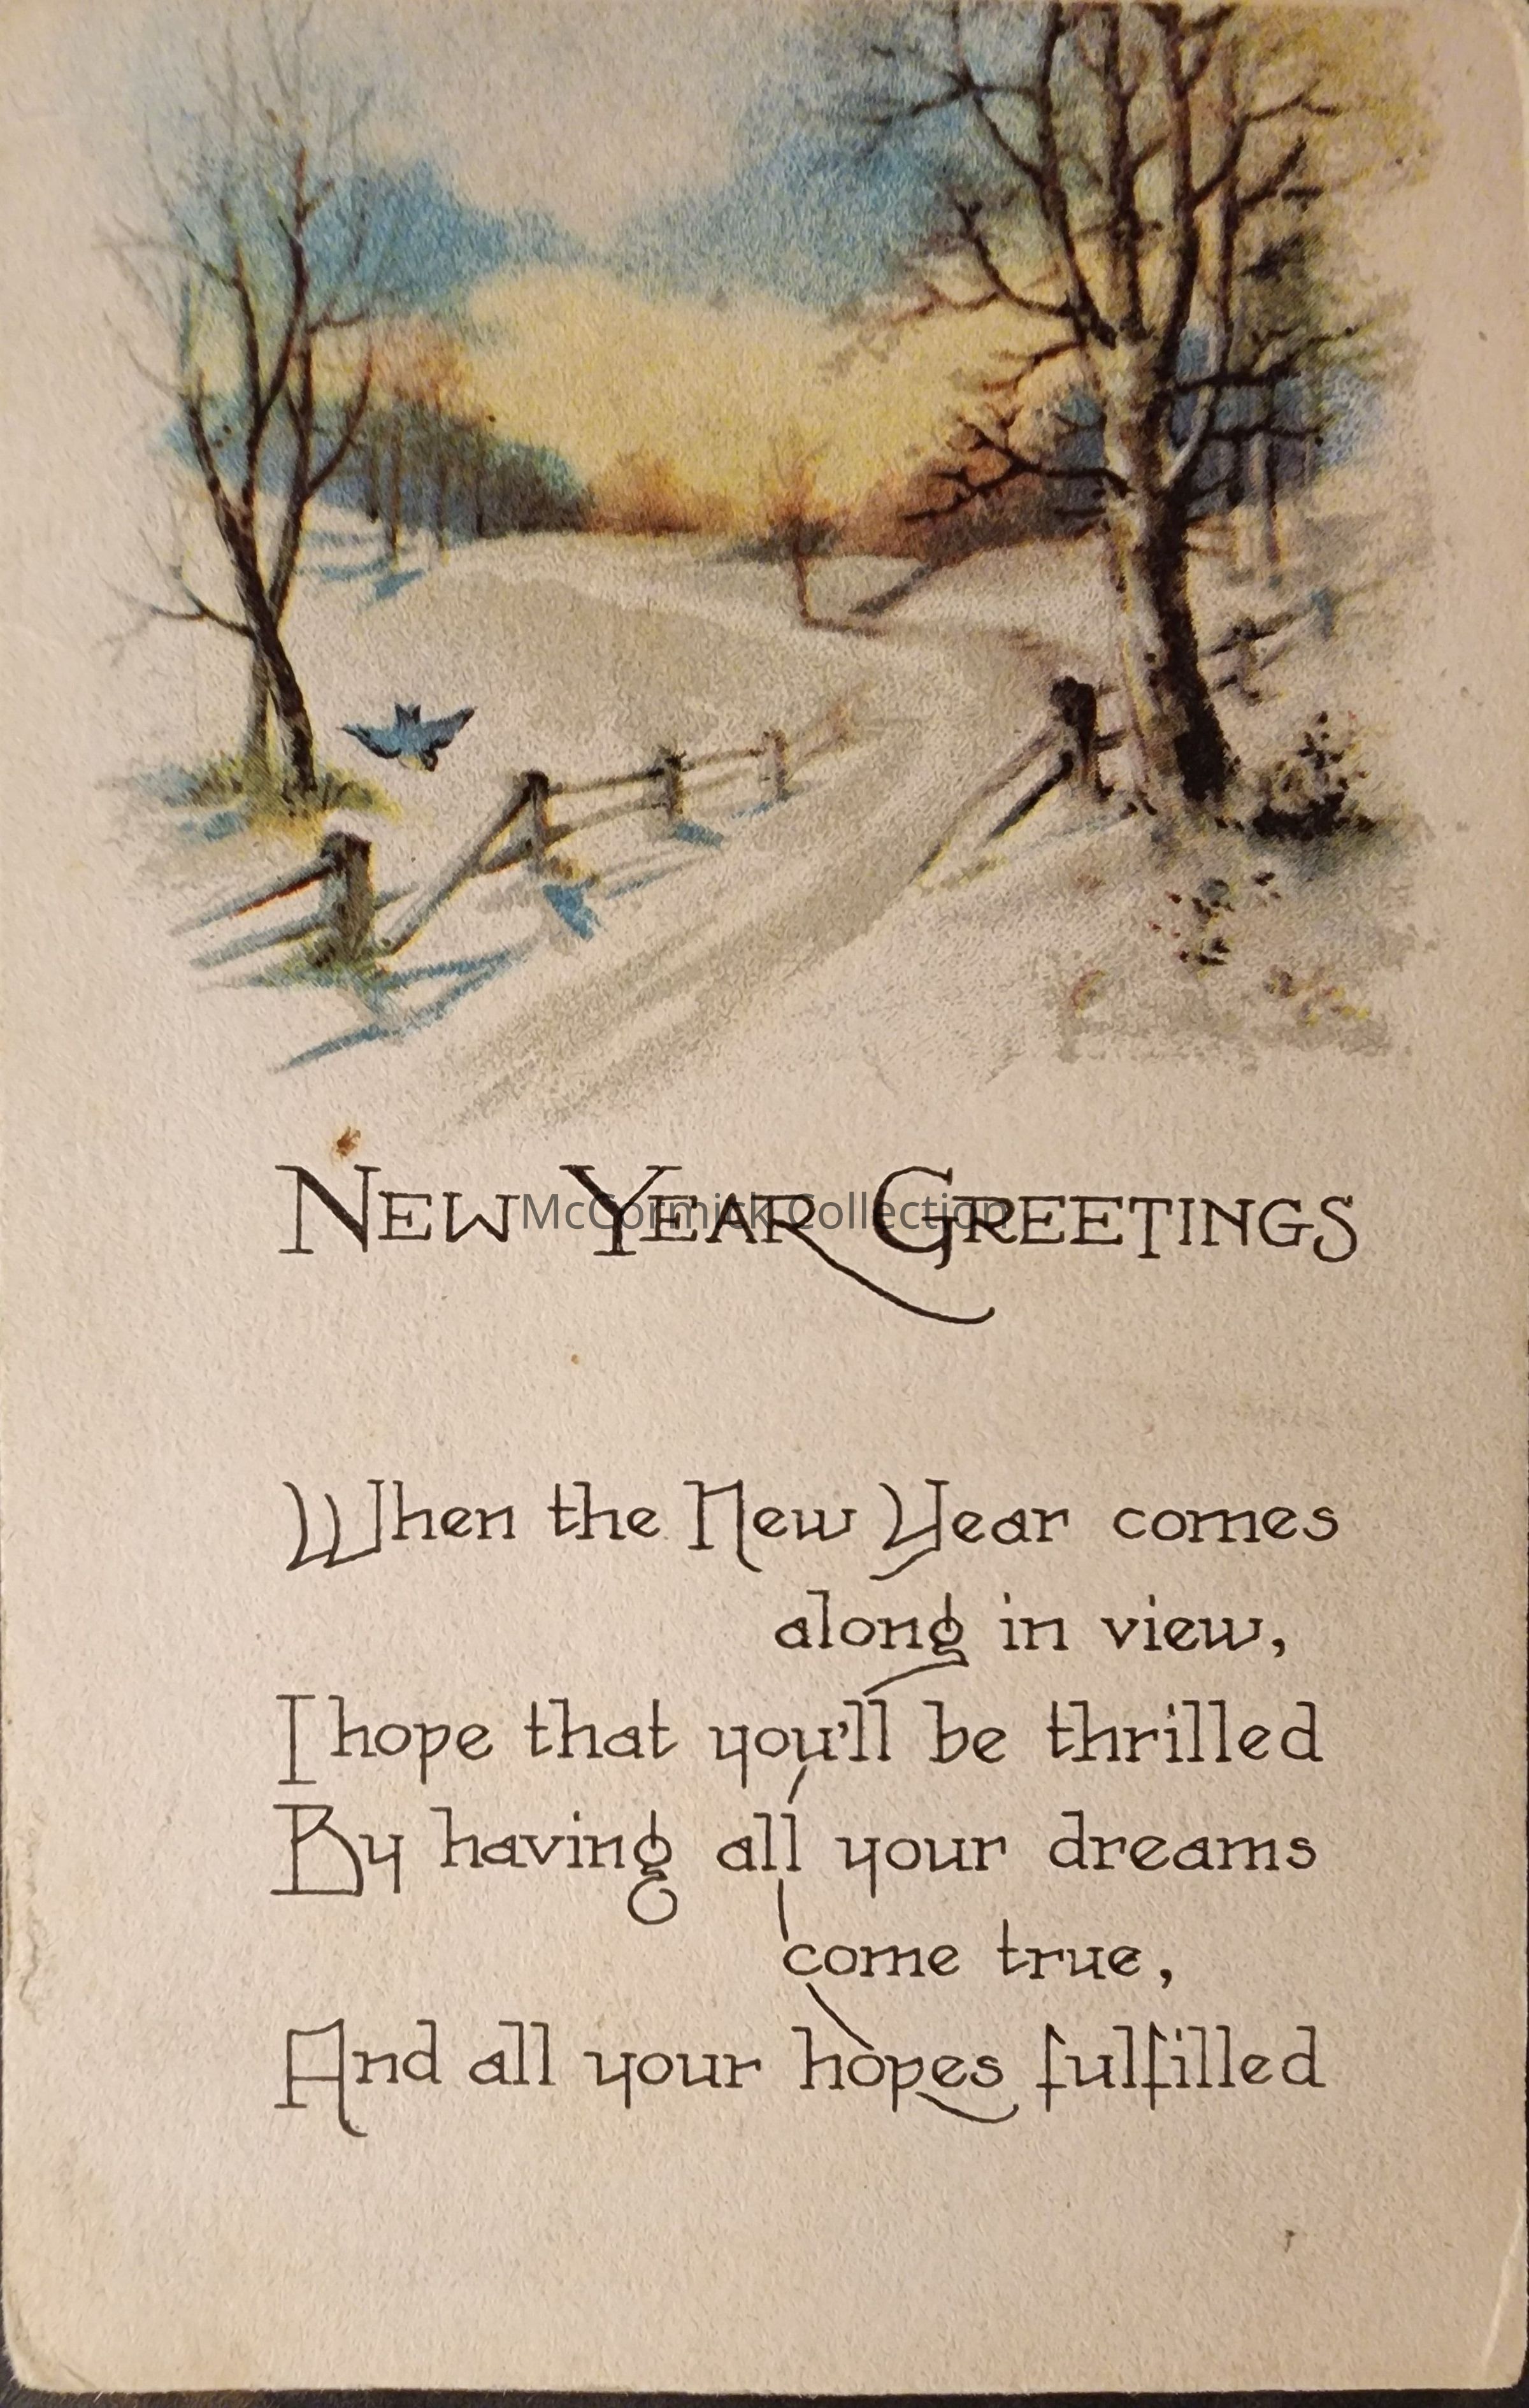 NEW YEAR GREETINGS
McCormick Collection
When the New Year comes
along in view,
I hope that you'll be thrilled
By having all your dreams
come true,
And all your hopes fulfilled